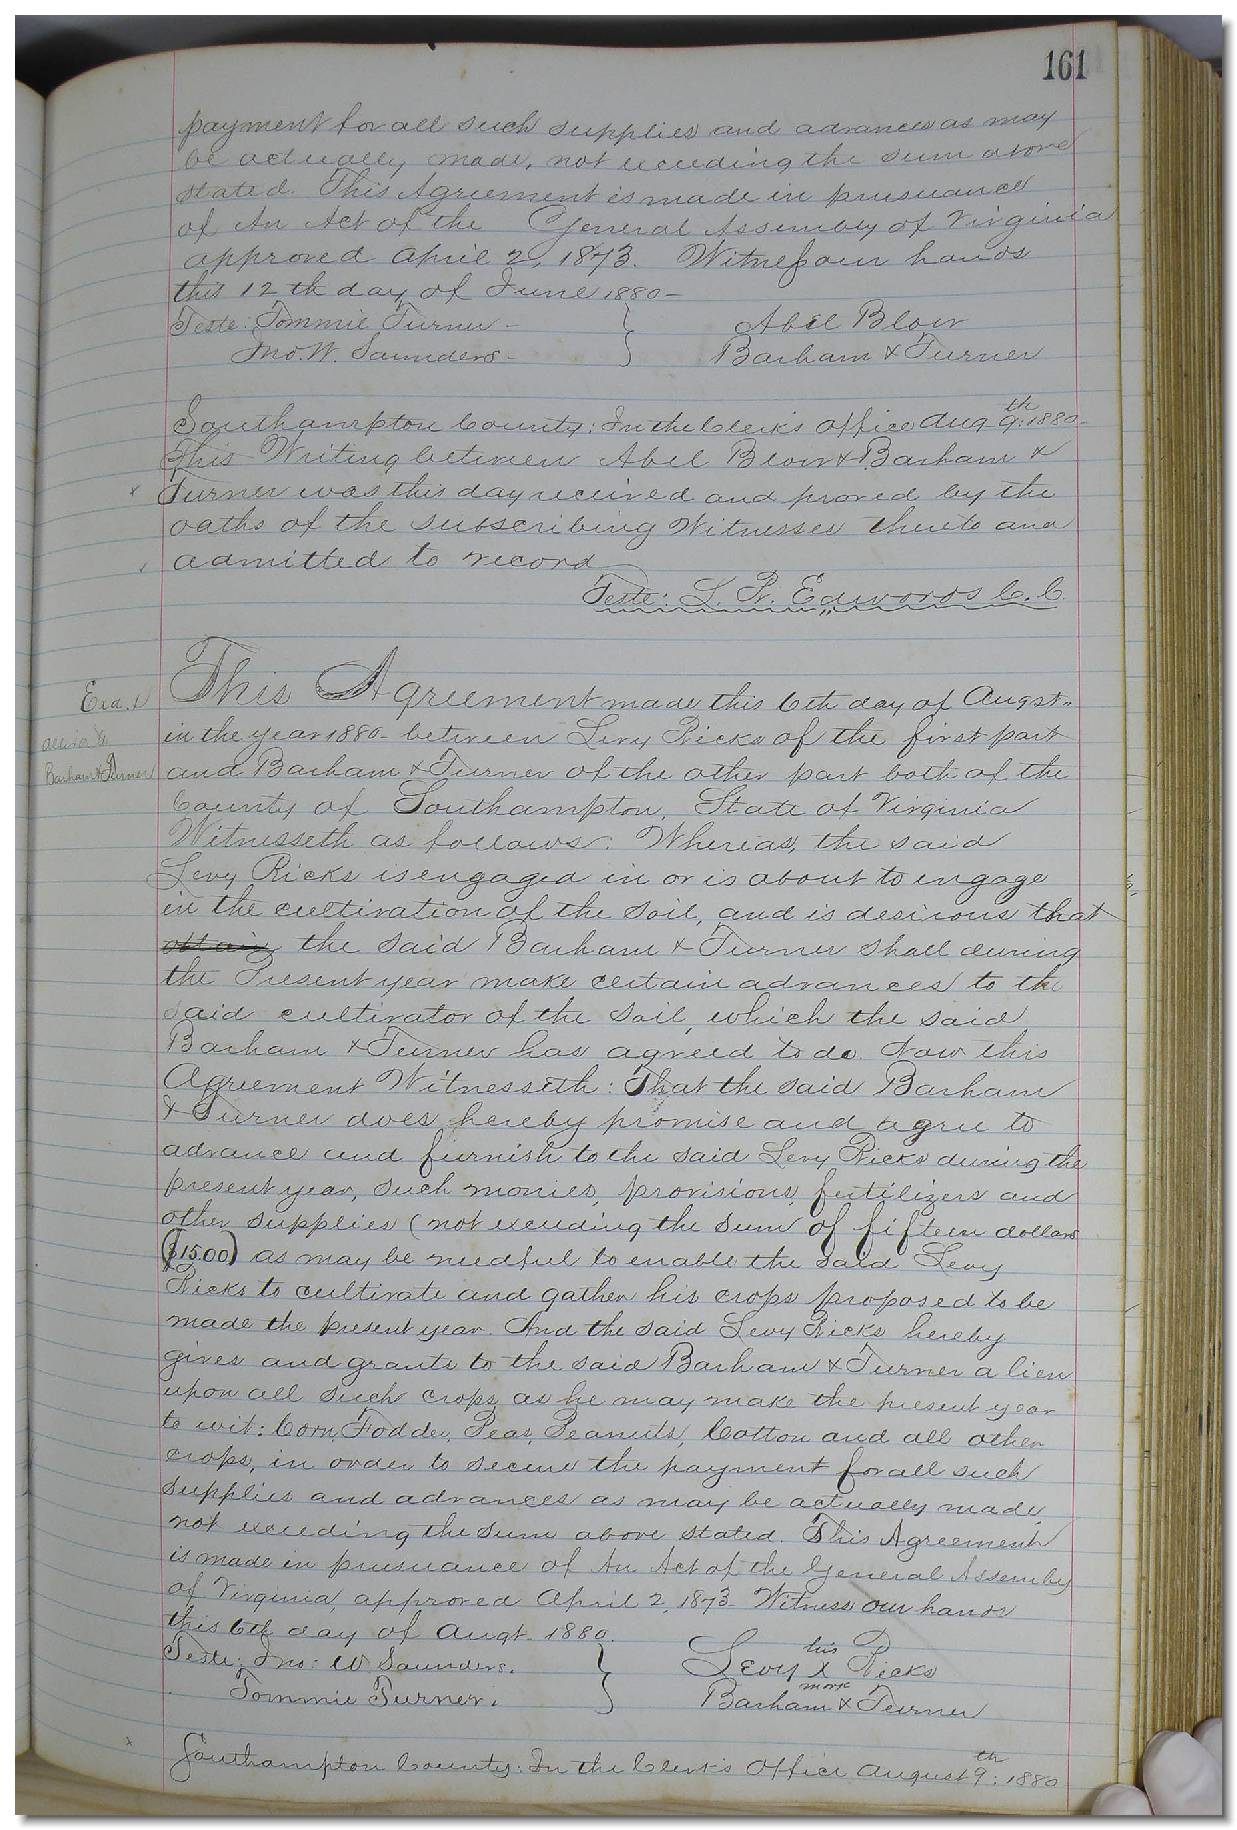 161
payment for all such supplies and advances as may
be actually made, not exceeding the sum above
stated. This Agreement is made in pursuance
of An Act of the General Assembly of Virginia
approved April 2, 1873. Witness our hands
this 12th day of June 1880-
Teste: Tommie Turner- } Abel Blow
Jno. W. Saunders- Barham & Turner
Southampton County: In the Clerk's office Aug 9th: 1880-
This Writing between Abel Blow & Barham &
x Turner was this day received and proved by the
oaths of the subscribing Witnesses thereto and
admitted to record
Teste: L. R. Edwards C. C.
This Agreement made this 6th day of Augst.
in the year 1880- between Levy Ricks of the first part
Barham & Turner and Barham & Turner of the other part both of the
County of Southampton, State of Virginia
Witnesseth as follows: Whereas, the said
Levy Ricks is engaged in or is about to engage
in the cultivation of the soil, and is desirous that
the said Barham & Turner shall during
the Present year make certain advances to the
said cultivator of the soil, which the said
Barham & Turner has agreed to do. Now this
Agreement Witnesseth: That the said Barham
& Turner does hereby promise and agree to
advance and furnish to the said Levy Ricks during the
present year, such monies, provisions, fertilizers and
other supplies (not exceeding the sum of fifteen dollars
($15.00) as may be needful to enable the said Levy
Ricks to cultivate and gather his crops proposed to be
made the present year. And the said Levy Ricks hereby
gives and grants to the said Barham & Turner a lien
upon all such crops as he may make the present year
to wit: Corn, Fodder, Peas, Peanuts, Cotton and all other
crops, in order to secure the payment for all such
supplies and advances as may be actually made,
not exceeding the sum above stated. This Agreement
is made in pursuance of An Act of the General Assembly
of Virginia, approved April 2, 1873- Witness our hands
this 6th day of Augt. 1880.
Teste: Jno: W. Saunders. } Levy his x mark Ricks
Tommie Turner. Barham & Turner
x Southampton County: In the Clerk's Office August 9th: 1880